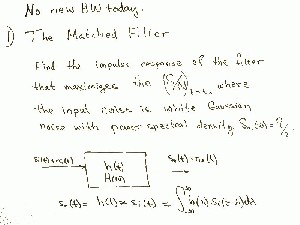 No new HW today.
1) The Matched Filter
Find the impulse response of the filter
that maximizes the (S/N) t=t₀ where
the input noise is white Gaussian
noise with power spectral density Sn(ω) = η/2.
Si(t)+ni(t)
h(t)
H(ω)
So(t)+no(t)
So(t) = h(t) * Si(t) = ∫ h(λ) Si(t-λ)dλ